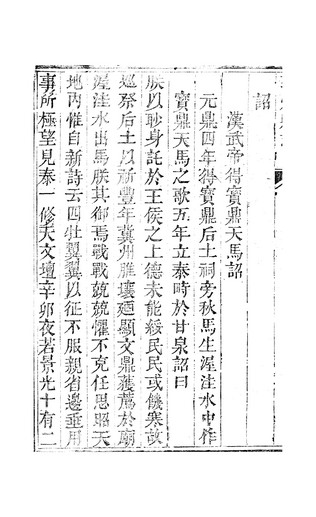 詔
漢武帝得寶鼎天馬詔
元鼎四年得寶鼎后土祠旁秋馬生渥洼水中作
寶鼎天馬之歌五年立泰畤於甘泉詔曰
朕以眇身託於王侯之上德未能綏民民或饑寒故
巡祭后土以祈豐年冀州脽壤廼顯文鼎獲薦於廟
渥洼水出馬朕其御焉戰戰兢兢懼不克任思昭天
地內惟自新詩云四牡翼翼以征不服親省邊垂用
事所極望見泰一修天文壇辛卯夜若景光十有二